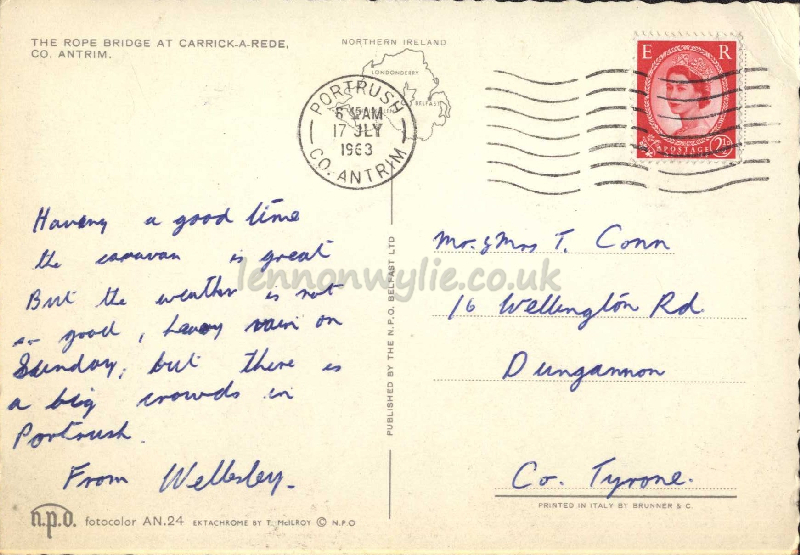 THE ROPE BRIDGE AT CARRICK-A-REDE,
CO. ANTRIM.
NORTHERN IRELAND
LONDONDERRY
BELFAST
PORTRUSH
AM
17 JLY
1963
CO. ANTRIM
E R
POSTAGE
Having a good time
the caravan is great
But the weather is not
so good, heavy rain on
Sunday, but there is
a big crowds in
Portrush.
From Wellesley.
Mr. & Mrs T. Conn
16 Wellington Rd.
Dungannon
Co. Tyrone.
PUBLISHED BY THE N.P.O. BELFAST LTD
lennonwylie.co.uk
n.p.o. fotocolor AN.24 EKTACHROME BY T. McILROY © N.P.O
PRINTED IN ITALY BY BRUNNER & C.